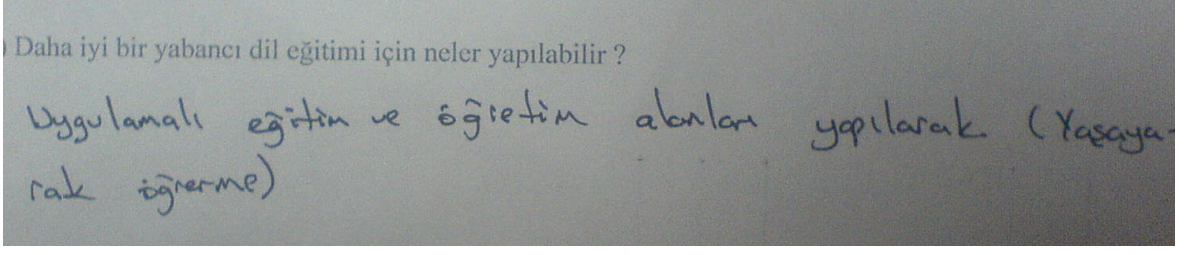 Daha iyi bir yabancı dil eğitimi için neler yapılabilir ?
Uygulamalı eğitim ve öğretim alanları yapılarak (Yaşaya-
rak öğrerme)